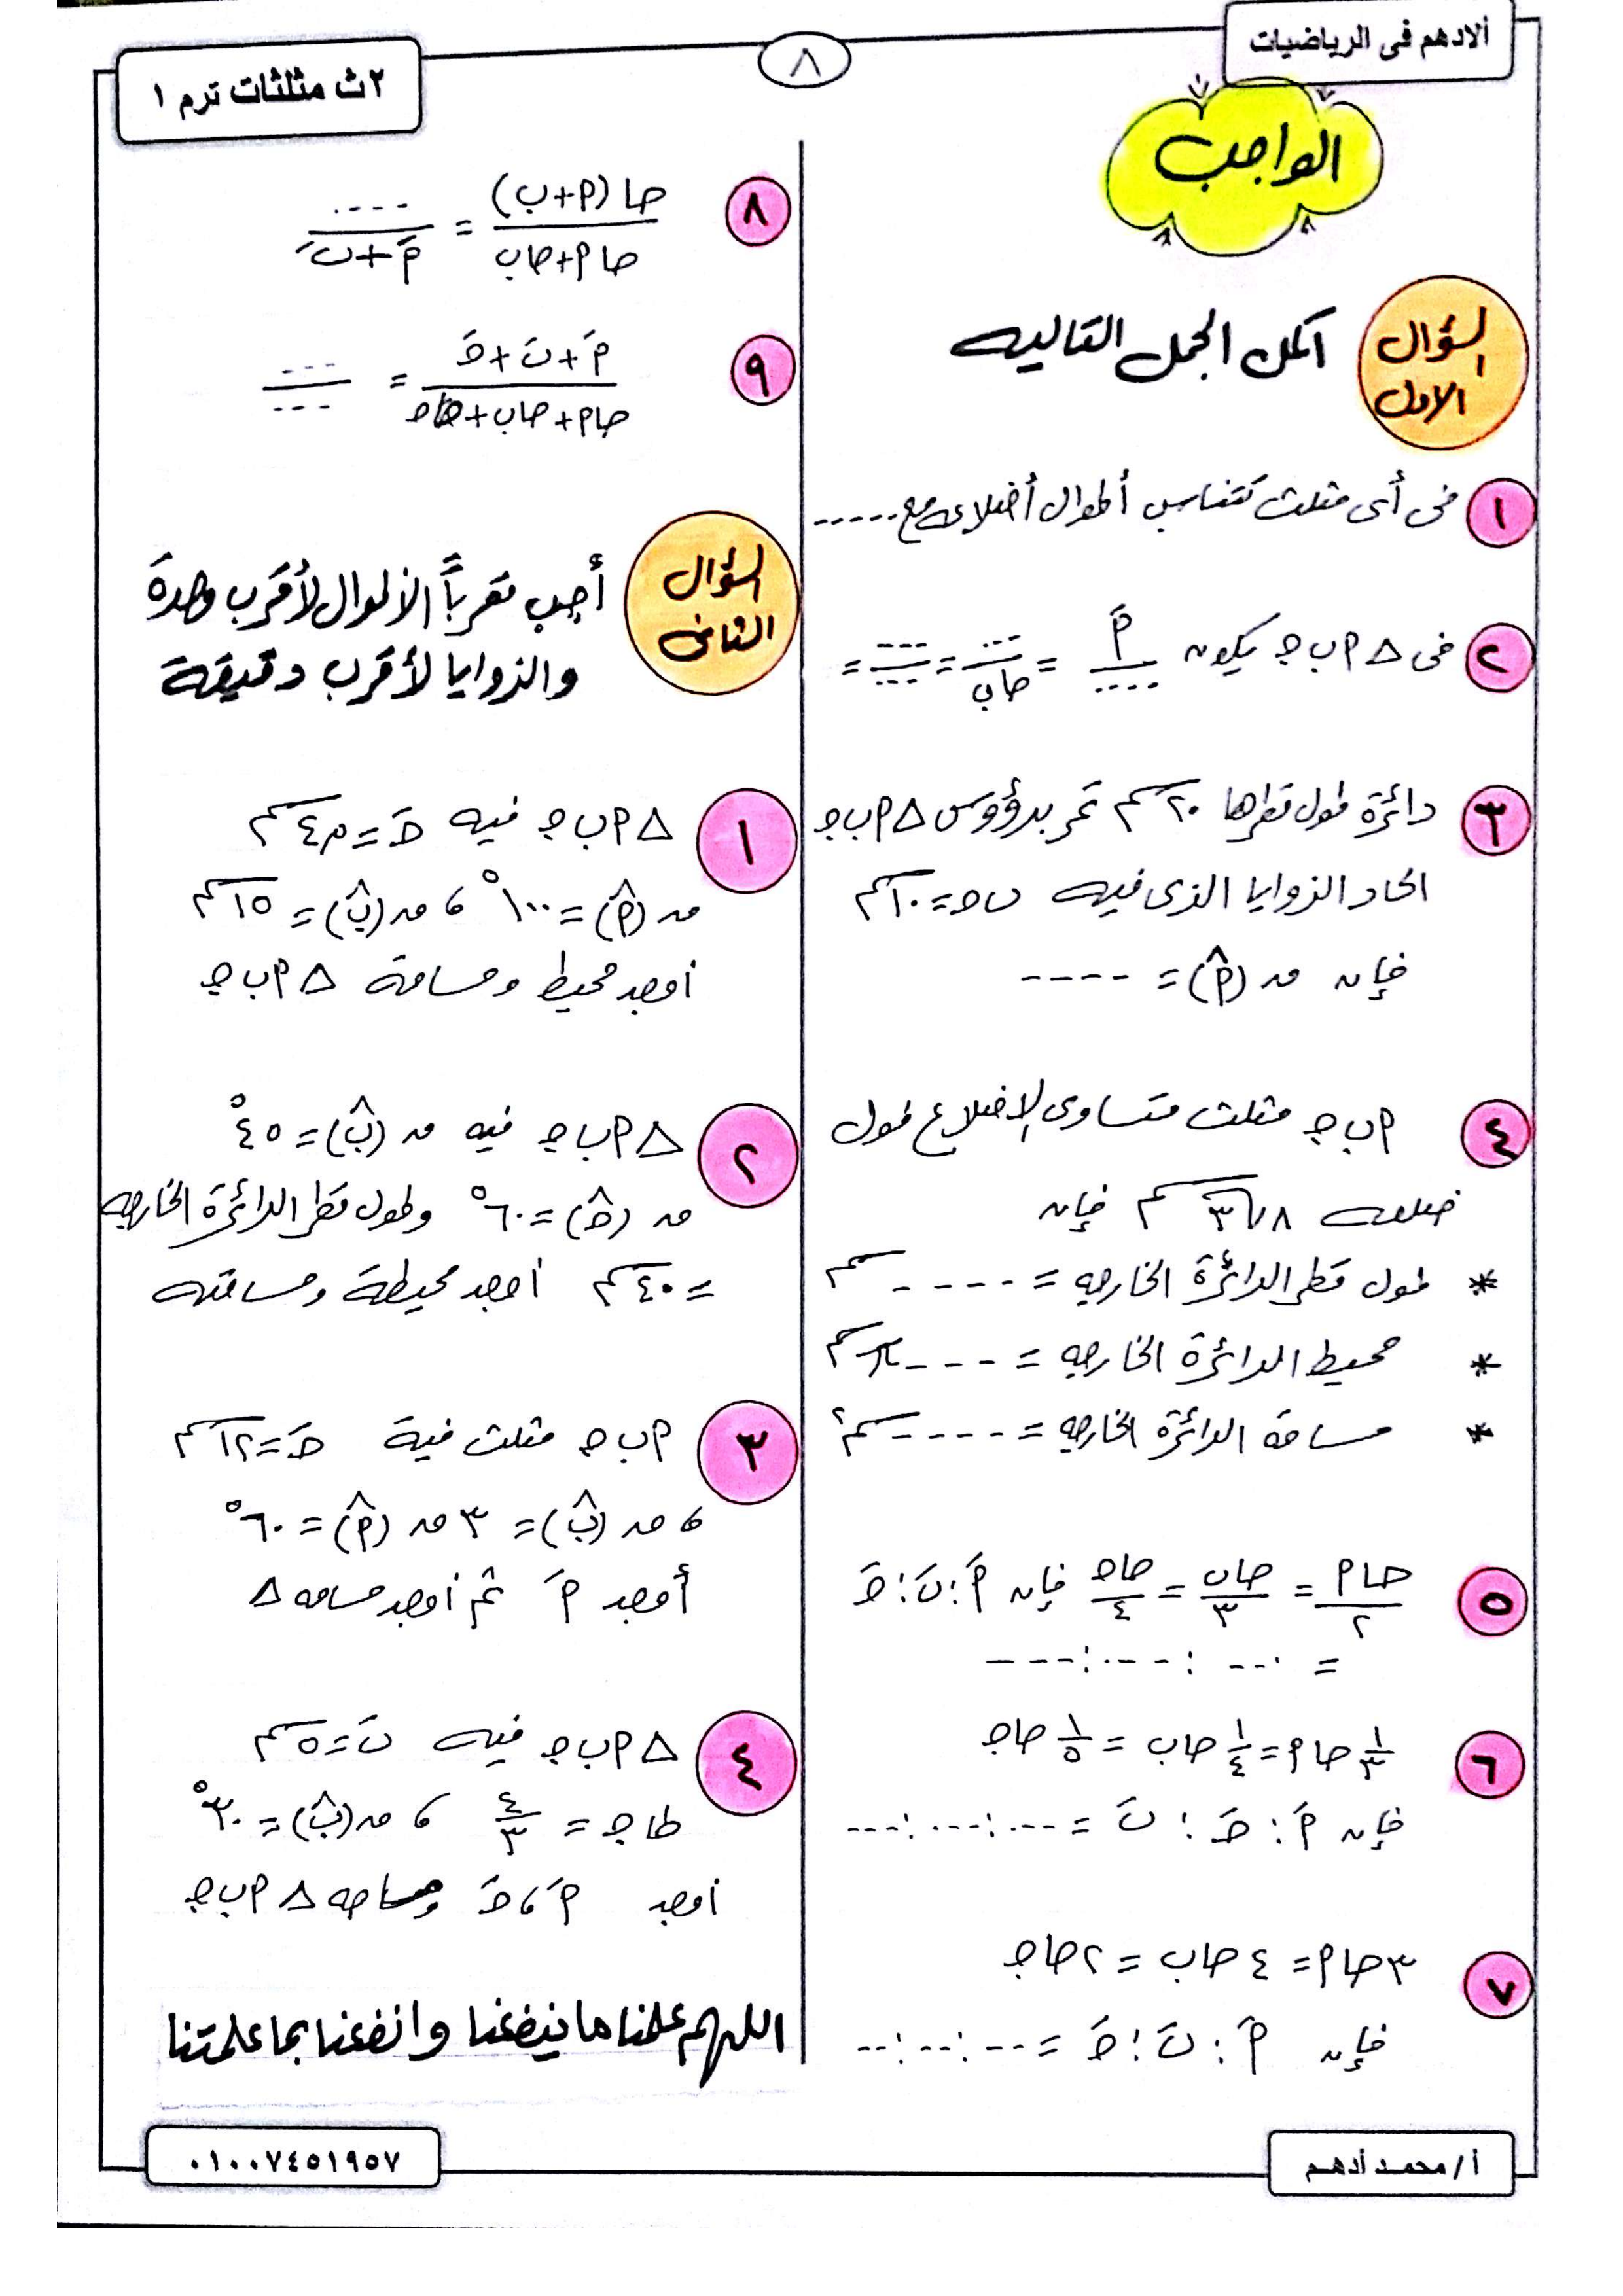 ألادهم فى الرياضيات
٨
٢ث مثلثات ترم ١
الواجب
السؤال الاول
اكمل الجمل التاليه
١ فى أى مثلث تتناسب أطوال أضلاعه مع .....
٢ فى △ ﺃ ب ج يكون أَ/.... = .../حا ب = ..../.... =
٣ دائرة طول قطرها ٢٠ سم تمر برؤوس △ ﺃ ب ج
الحاد الزوايا الذى فيه ب ج = ١٠ سم
فإن ق (أ^) = ----
٤ أ ب ج مثلث متساوى الاضلاع طول
ضلعه ٨√٣ سم فإن
* طول قطر الدائرة الخارجه = ----- سم
* محيط الدائرة الخارجه = ---- π سم
* مساحة الدائرة الخارجه = ----- سم٢
٥ حا أ/٢ = حا ب/٣ = حا ج/٤ فإن أَ : بَ : جَ
= --- : --- : ---
٦ ١/٣ حا أ = ١/٤ حا ب = ١/٥ حا ج
فإن أَ : جَ : بَ = ---:---:---
٧ ٣ حا أ = ٤ حا ب = ٢ حا ج
فإن أَ : بَ : جَ = --:--:--
٨ حا (أ + ب)/(حا أ + حا ب) = ..../(أَ + بَ)
٩ (أَ + بَ + جَ)/(حا أ + حا ب + حا ج) = ---/---
السؤال الثانى
أجب مقرباً الأطوال لأقرب وحدة
والزوايا لأقرب دقيقة
١ △ أ ب ج فيه جَ = ٤ سم
ق (أ^) = ١٠٠° ، ق (ب^) = ١٥ سم
أوجد محيط ومساحة △ أ ب ج
٢ △ أ ب ج فيه ق (ب^) = ٤٥°
ق (ج^) = ٦٠° وطول قطر الدائرة الخارجه
= ٤٠ سم أوجد محيطة ومساحته
٣ أ ب ج مثلث فية جَ = ١٢ سم
، ق (ب^) = ٣ ق (أ^) = ٦٠°
أوجد أَ ثم أوجد مساحه △
٤ △ أ ب ج فيه بَ = ٥ سم
طا ج = ٤/٣ ، ق (ب^) = ٣٠°
أوجد أَ ، جَ ومساحه △ أ ب ج
اللهم علمنا ما ينفعنا وانفعنا بما علمتنا
أ/ محمد أدهم
٠١٠٠٧٤٥١٩٥٧